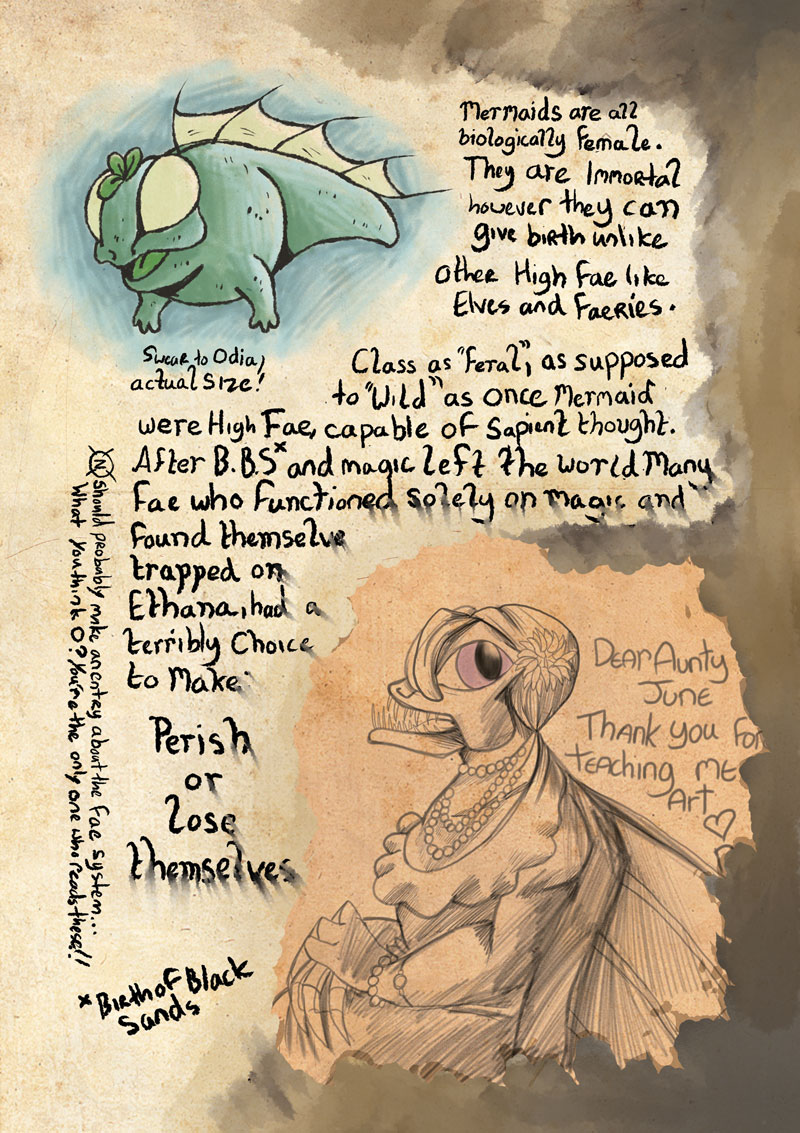 Mermaids are all
biologically female.
They are Immortal
however they can
give birth unlike
other High Fae like
Elves and Faeries.
Swear to Odia,
actual size!
Class as "Feral", as supposed
to "Wild" as once Mermaid
were High Fae, capable of Sapient thought.
After B.B.S* and magic left the world Many
Fae who functioned solely on magic and
found themselve
trapped on
Ethana, had a
terribly Choice
to Make
Perish
or
lose
themselves
(N) should probably make an entry about the Fae system...
What you think O? You're the only one who reads these!!
* Birth of Black
Sands
Dear Aunty
June
Thank you for
teaching me
art ♡